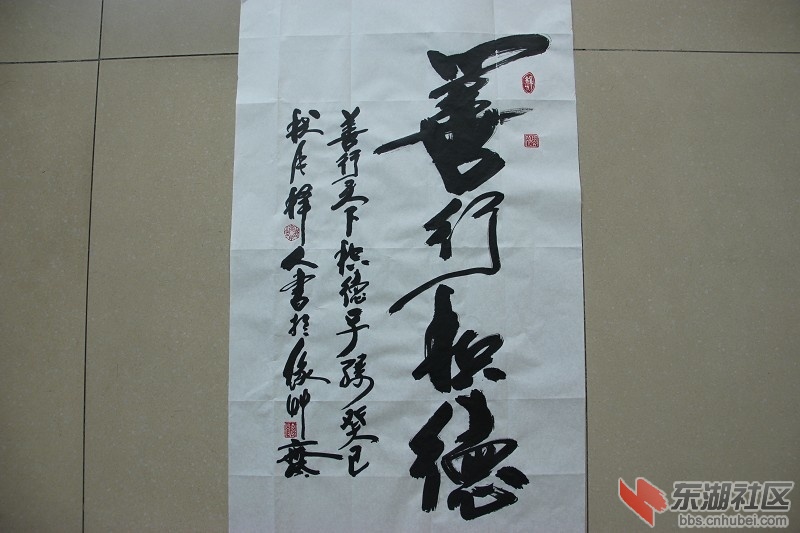 善行积德
善行天下积德子孙癸巳
秋月禅人书於缘帅斋
东湖社区
bbs.cnhubei.com